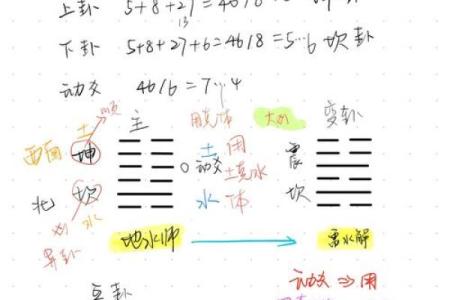 上卦 5+8+27=40/8
13
下卦 5+8+27+6=46/8=5…6 坎卦
动爻 46/6=7…4
顺
土 主 用克体 大凶 变卦
西南 坤 土 用 震
动爻 土克水
北 坎 水 体 坎
凶 水
异卦 地水师 雷水解
动爻⇒用
互卦